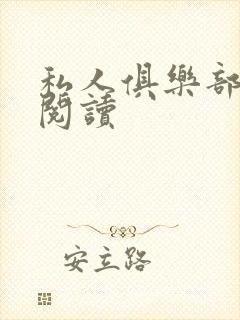 私人俱樂部
閱讀
安立路